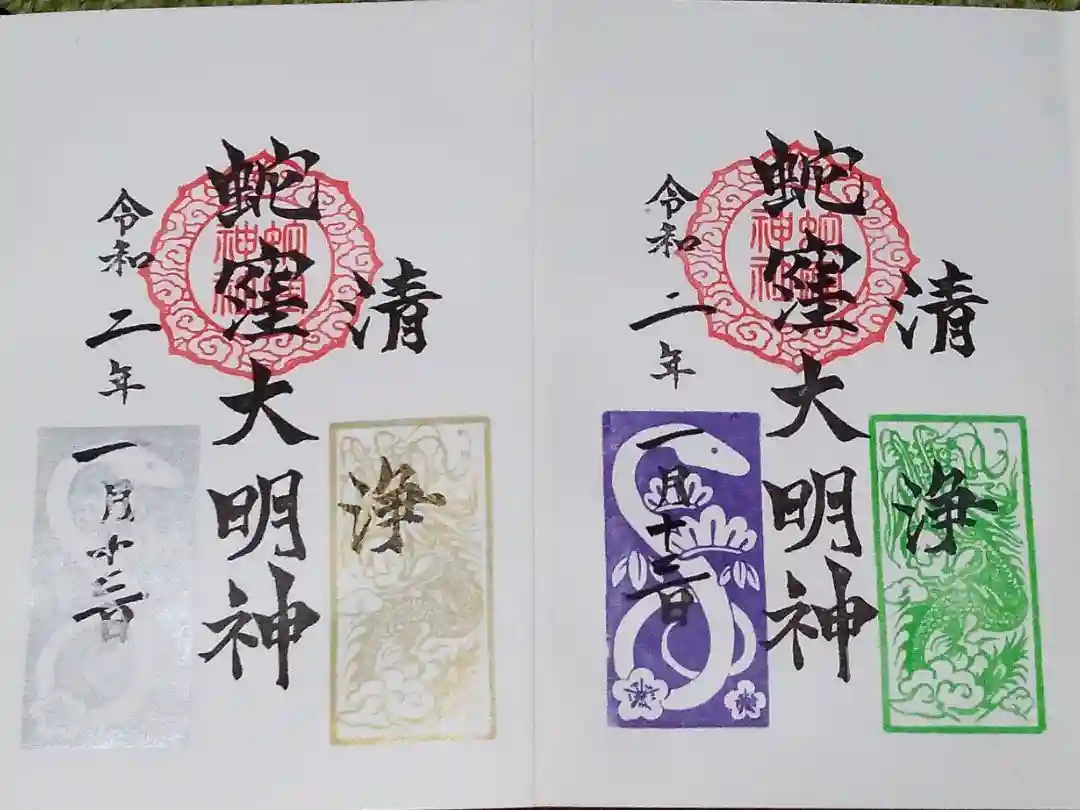 清浄
蛇窪大明神
蛇窪神社
令和二年一月十三日
清浄
蛇窪大明神
蛇窪神社
令和二年一月十三日